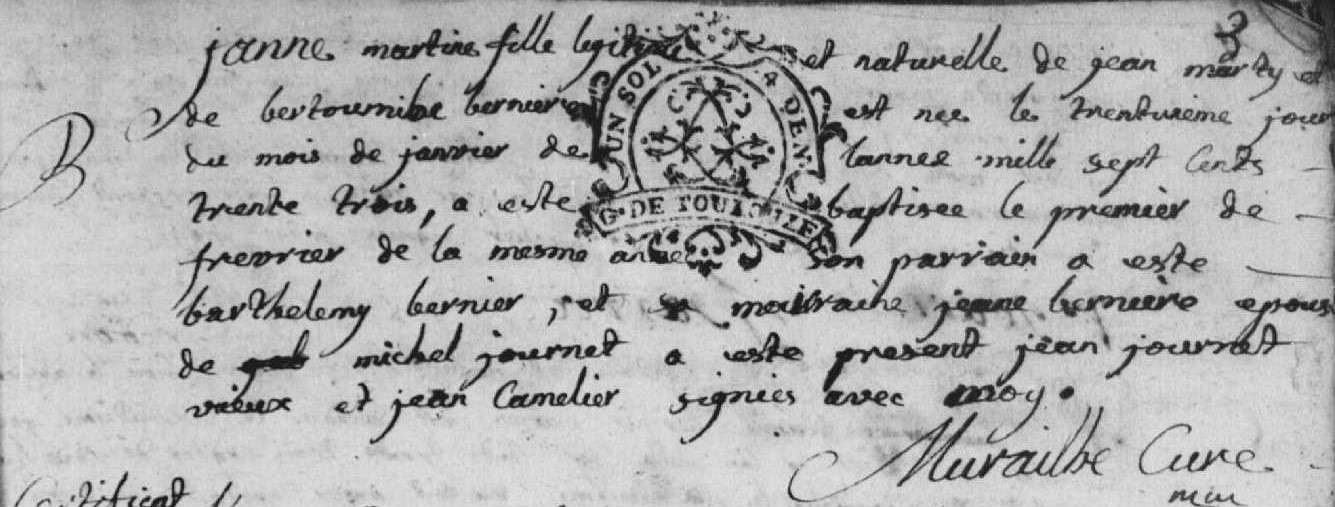 3
janne martine fille legitime et naturelle de jean marty et
de bertoumibe berniere est nee le trentuieme jour
du mois de janvier de lannee mille sept Cents
trente trois, a este baptisee le premier de
frevrier de la mesme annee son parrain a este
barthelemy bernier, et sa mairaine jeane berniere epouse
de michel journet a este present jean journet
vieux et jean Camelier signies avec moy.
Murailhe Cure
B
UN SOL 4 DEN.
G. DE TOULOUZE
Certificat